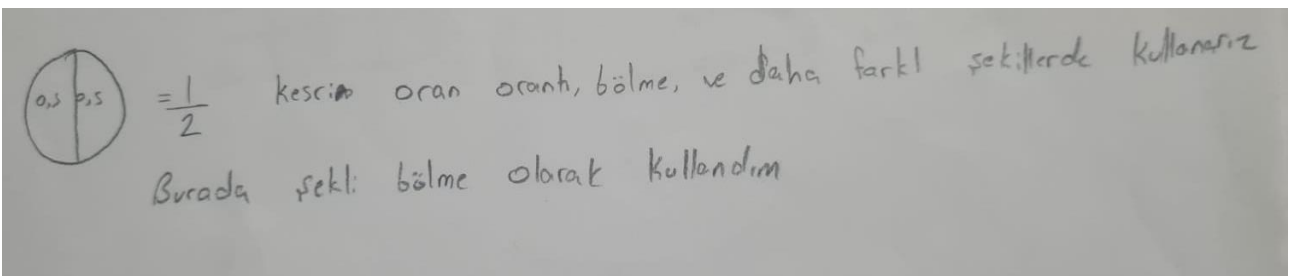 0,5 0,5 = 1/2 kesrin oran orantı, bölme, ve daha farklı şekillerde kullanırız
Burada şekli bölme olarak kullandım